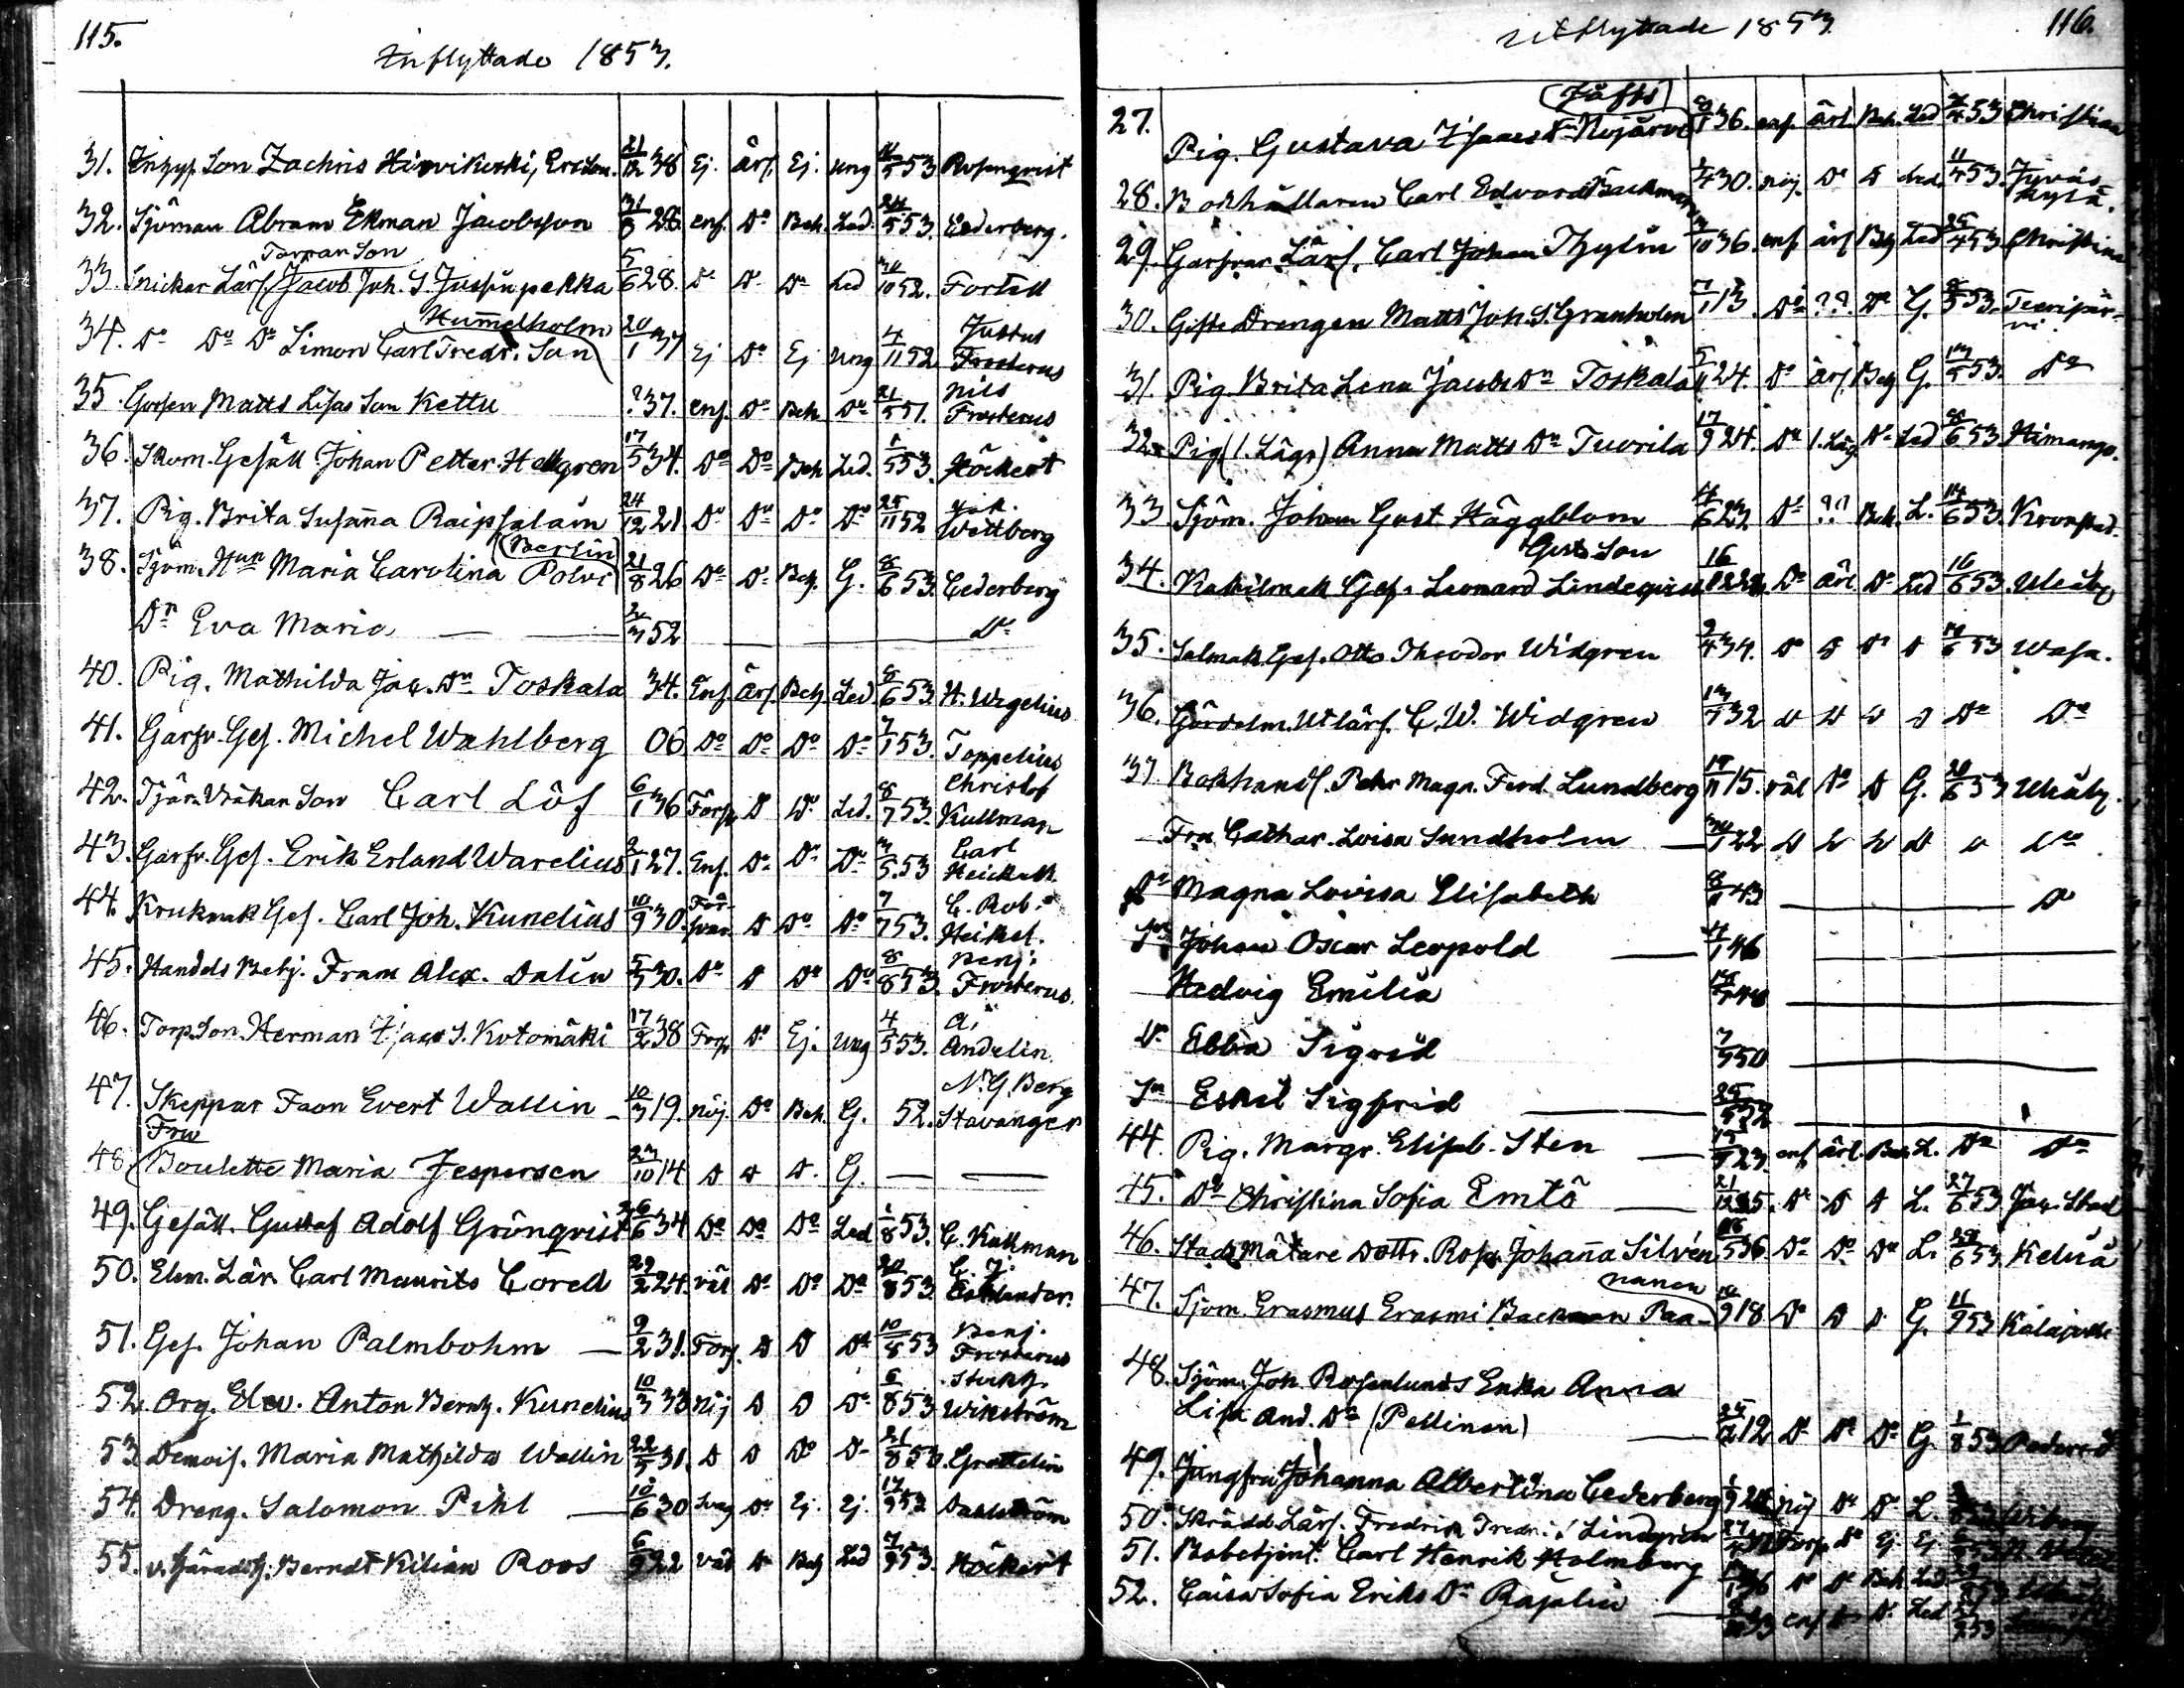 115.
Inflyttade 1853.
31. Inhys. Son Zachris Hirvikoski, Ersson. 21/12 38 Ej. ärl. Ej. ung 16/5 53 Rosenqvist
32. Sjöman Abram Ekman Jacobsson 31/8 28. enf. Do Beh. Led. 24/5 53. Cederberg.
Torpar Son
33. Snickar Lärl. Jacob Joh. S. Jussinpekka 5/6 28. Do Do Do Led 10 52. Forsell
Hummelholm
34. Do Do Do Simon Carl Fredr. Son 20/1 37 Ej Do Ej ung 4/11 52 Justus Frosterus
35. Gossen Matts Lisas Son Kettu ? 37. enf. Do Beh. Do 21/5 51. Nils Frosterus
36. Skom. Gesäll Johan Petter Hellgren 17/5 34. Do Do Beh Led. 1/5 53. Höckert
37. Pig. Brita Susanna Raipsalam 24/12 21 Do Do Do Do 25/11 52 Wettberg
(Berlin)
38. Sjöm. Hun Maria Carolina Polvi 21/8 26 Do Do Beh. G. 8/6 53. Cederberg
Dr Eva Maria 2/3 52 Do
40. Pig. Mathilda Jac. Dr Toskala 34. Enf. Ärl. Beh. Led. 8/6 53. H. Wegelius
41. Garfv. Ges. Michel Wahlberg 06 Do Do Do Do 7/1 53. Toppelius
42. Tjär. Vräkar Son Carl Löf 6/1 36 Forsv D Do Led. 8/7 53. Christof Kullman
43. Garfv. Ges. Erik Erland Warelius 2/1 27. Enf. Do Do Do 3/5 53 Carl Heickell.
44. Krukmak Ges. Carl Joh. Kunelius 10/9 30. För-svar. D Do Do 7/7 53. C. Rob. Heikel.
45. Handels Betj. Frans Alex. Dalin 5/5 30. Do D Do Do 8/8 53. Benj. Frosterus.
46. Torp. Son. Herman Isacs S. Kotomäki 17/2 38 Forsv Do Ej. ung 4/5 53. A. Andelin
47. Skeppar Faon Evert Wallin 10/3 19. nöj. Do Beh. G. 52. N. G. Berg Stavanger
Fru
48. Boulette Maria Jespersen 23/10 14 D D D. G.
49. Gesäll. Gustaf Adolf Grönqvist 26/6 34 Do Do Do Led 1/8 53. C. Kullman
50. Elem. Lär. Carl Maurits Cored 22/2 24. väl Do Do Do 20/8 53. C. J. Estlander.
51. Ges. Johan Palmbohm 9/2 31. Forsv. D D Do 10/8 53 Benj. Frosterus
52. Org. Elev. Anton Bernh. Kunelius 10/3 33 Nöj D D Do 6/8 53 Wikström
53. Demois. Maria Mathilda Wallin 22/5 31. D D Do Do 21/8 53. Grottelin
54. Dreng. Salomon Pihl 10/6 30 Svag Do Ej. Ej. 17/9 52 Dahlström
55. v. Häradsh. Berndt Kilian Roos 6/9 22 väl D Beh Led 7/9 53. Höckert
Utflyttade 1853.
116.
(Jåfts)
27. Pig. Gustava Isaacs Dr Nojärvi 36. enf. ärl. Beh. Led 2/4 53 Christina
28. Bokhållaren Carl Edvard Backman 1/4 30. nöj. Do D Led. 11/4 53. Jyväs-kylä.
29. Garfvar Lärl. Carl Johan Thylin 3/10 36. enf ärl Beh Led 25/4 53 Christina
30. Gifte Drengen Matts Joh. S. Granholm 7/1 13. Do ??. Do G. 2/5 53. Teerijär-vi
31. Pig. Brita Lena Jacobs Dr Toskala 5/11 24. Do ärl. Beh G. 13/5 53. Do
32. Pig (l. Lägr) Anna Matts Dr Tuorila 17/9 24. Do l. Läg. Do Led 8/6 53 Himango.
33 Sjöm. Johan Gust. Häggblom 4/6 23. Do ?? Beh. L. 14/6 53. Kronstad.
Gusts Son
34. Kakelmak Ges. Leonard Lindeqvist 16/12 22 Do ärl. Do Led 16/6 53. Uleåbg
35. Salmak. Ges. Otto Theodor Widgren 9/4 34. Do D Do D 17/6 53 Wasa.
36. Gördelm. Utlärl. C. W. Widgren 13/7 32 D D D D Do Do
37 Bokhandl. Pehr Magn. Ferd. Lundberg 19/11 15. väl Do D G. 20/6 53 Uleåbg.
Fru Cathar. Lovisa Sundholm 30/1 22 D D D D D Do
Dr Magna Lovisa Elisabeth 8/11 43 D
Sn Johan Oscar Leopold 4/1 46
Hedvig Emilia 18/7 48
Dr Ebba Sigrid 7/5 50
Sn Eskil Sigfrid 25/5 52
44. Pig. Margr. Elisab. Sten 15/5 23. enf. ärl. Beh. L. Do Do
45. Do Christina Sofia Emtö 21/12 25. Do D D L. 27/6 53 Jac. Stad
46. Stads Mätare Dottr. Rosa Johanna Silvén 18/5 36 Do Do Do L. 29/6 53 Kelviå
nanen
47. Sjöm. Erasmus Erasmi Backman Paa- 10/9 18 Do D D G. 11/7 53 Kalajoki
48. Sjöm. Joh. Rosenlunds Enka Anna
Lisa And. Dr (Pellinen) 25/12 12 D Do Do G. 1/8 53 Pedersö
49. Jungfru Johanna Albertina Cederberg 24 nöj Do D L. 53 Wiborg
50. Skrädd. Lärl. Fredrik Fredr. S. Lindgren 27/4 Forsv. D Ej Ej 53
51. Bobetjent. Carl Henrik Holmberg 36 D D Beh Led. 29
52. Caisa Sofia Eriks Dr Rajalin 33 enf D D. Led 27/9 53